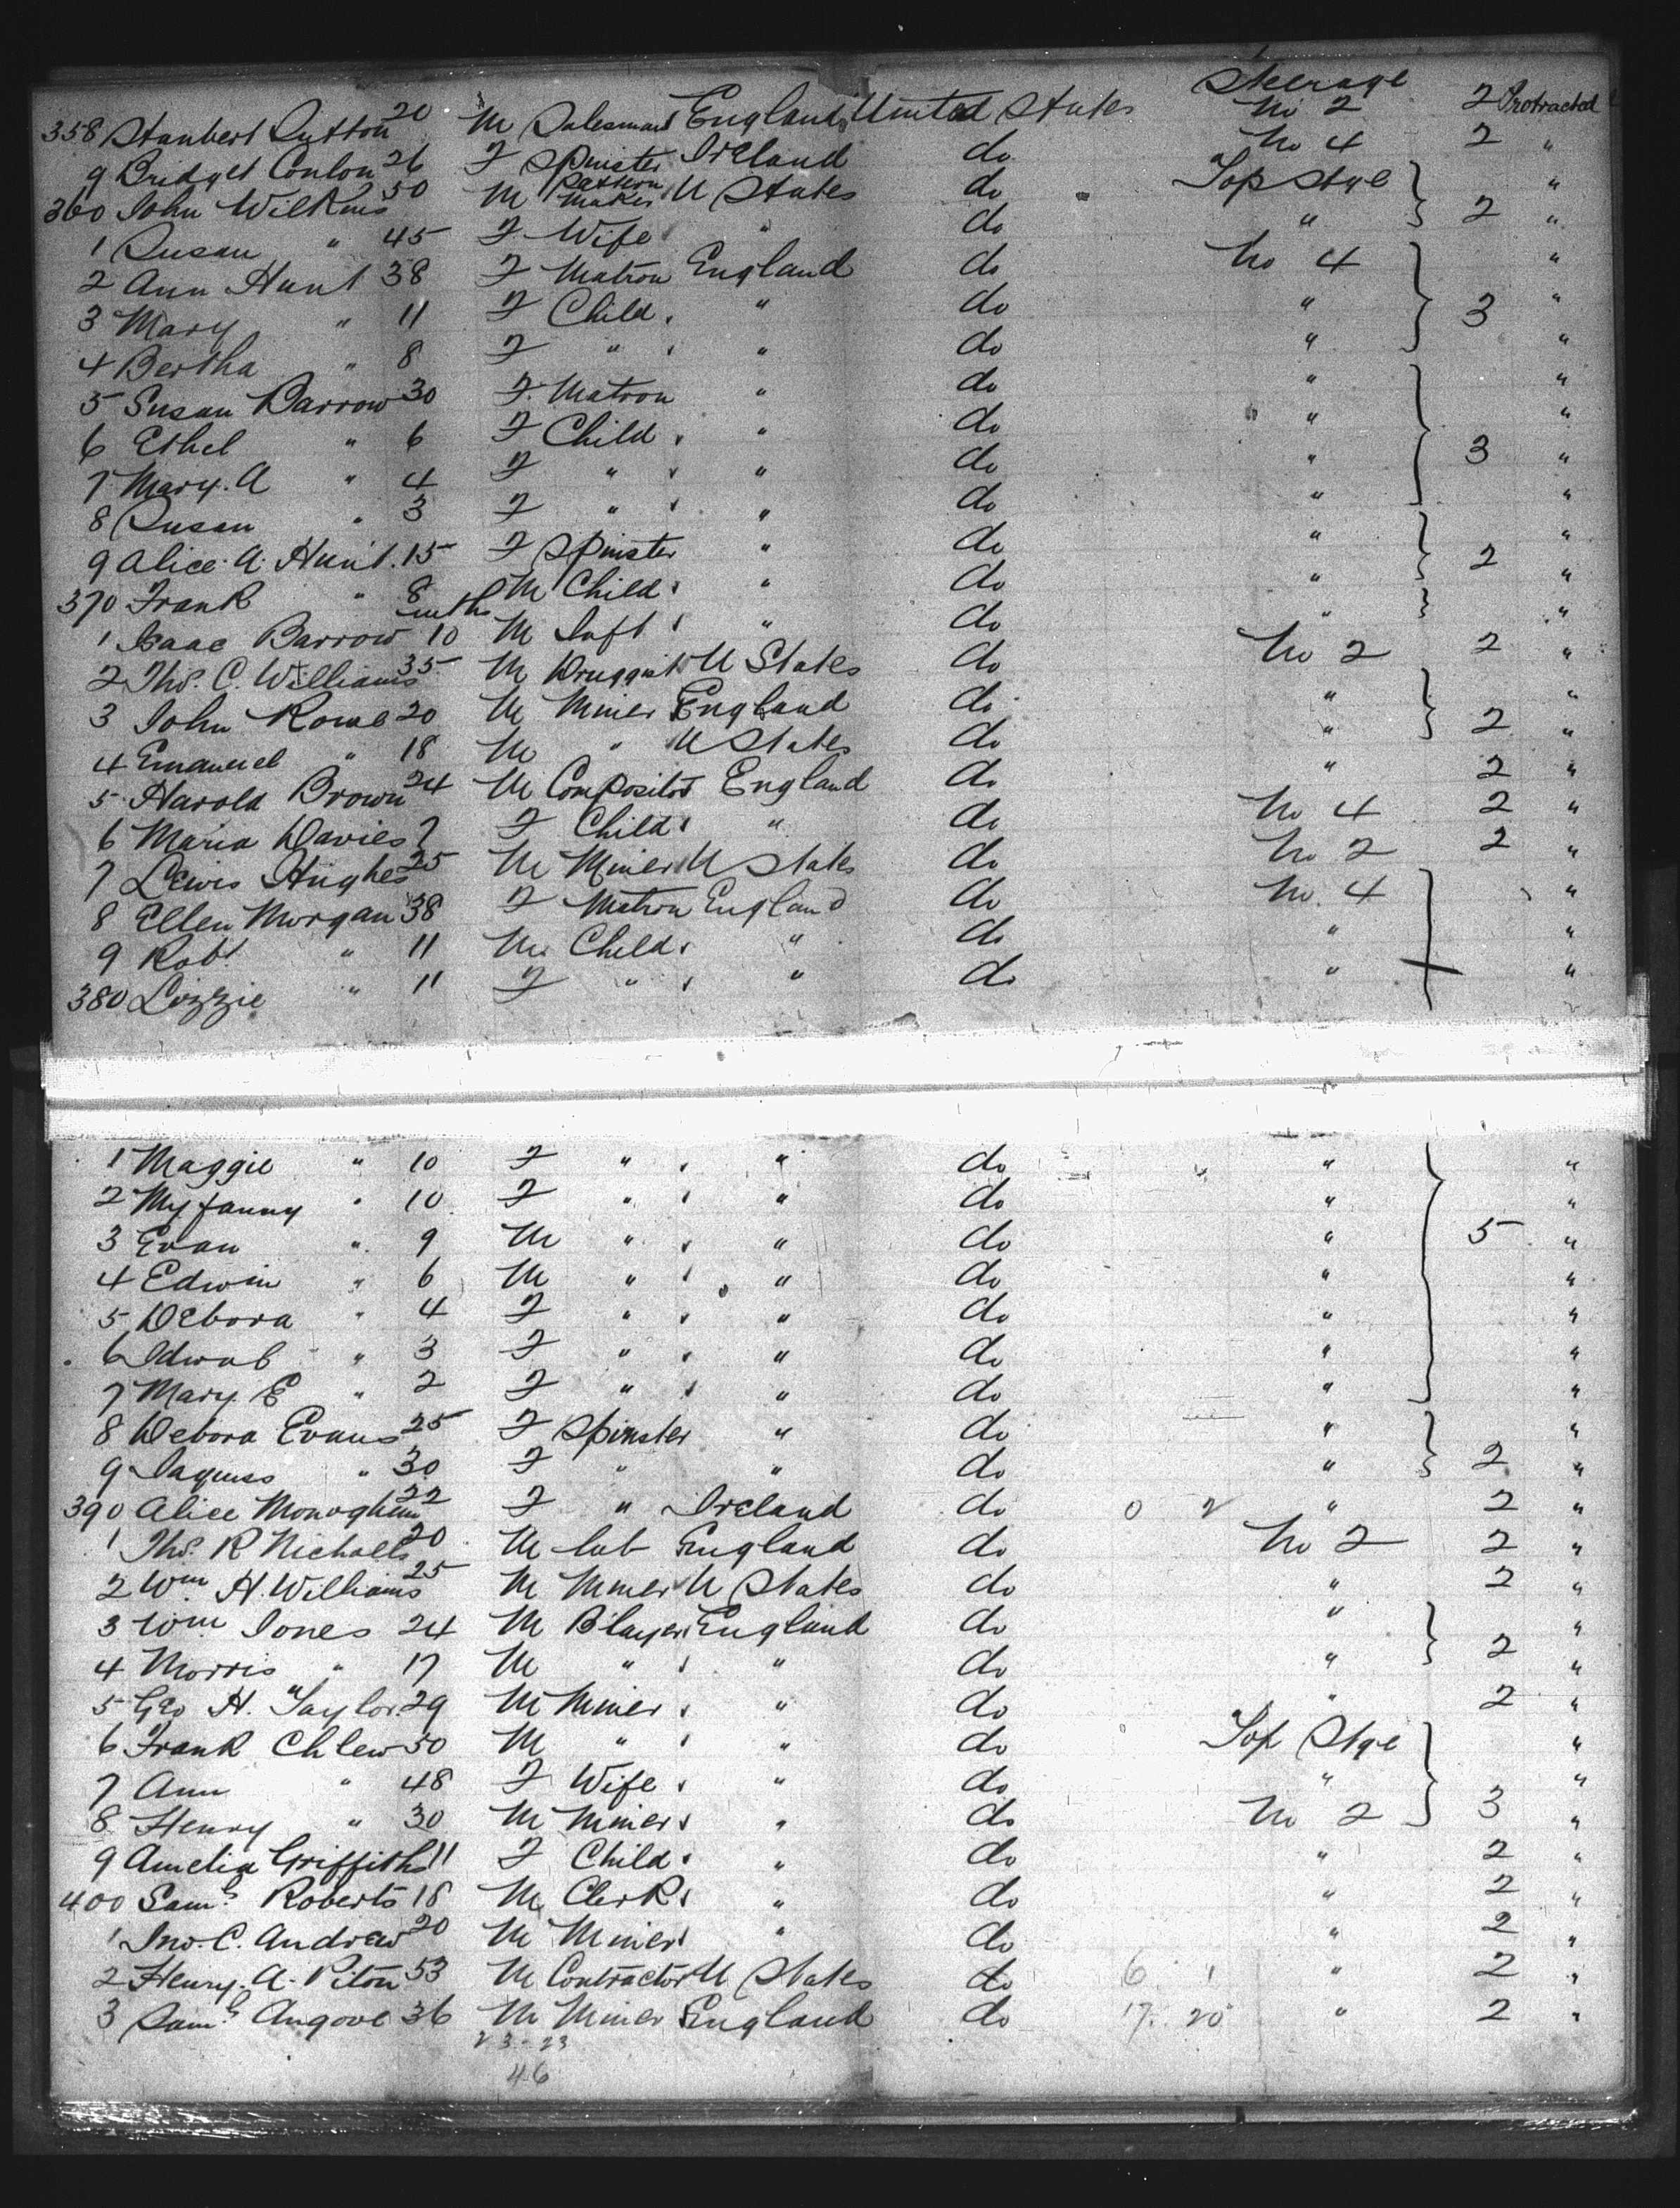 Steerage
358 Stanbert Sutton 20 M Salesman England United States No 2 2 Protracted
9 Bridget Conlon 26 F Spinster Ireland do No 4 2 "
360 John Wilkins 50 M Pattern Maker U States do Top Stge "
1 Susan " 45 F Wife " do " 2 "
2 Ann Hunt 38 F Matron England do No 4 "
3 Mary " 11 F Child " do " 3 "
4 Bertha " 8 F " " do " "
5 Susan Barrow 30 F Matron " do " "
6 Ethel " 6 F Child " do " "
7 Mary. A " 4 F " " do " 3 "
8 Susan " 3 F " " do " "
9 Alice. A. Hunt. 15 F Spinster " do " "
370 Frank " 8 M Child " do " 2 "
1 Isaac Barrow 10 mths M Inft " do " "
2 Thos. C. Williams 35 M Druggist U States do No 2 2 "
3 John Rowe 20 M Miner England do " "
4 Emanuel " 18 M " U States do " 2 "
5 Harold Brown 24 M Compositor England do " 2 "
6 Maria Davies 7 F Child " do No 4 2 "
7 Lewis Hughes 25 M Miner U States do No 2 2 "
8 Ellen Morgan 38 F Matron England do No. 4 "
9 Robt " 11 M Child " do " "
380 Lizzie " 11 F " " do " "
1 Maggie " 10 F " " do " "
2 Myfanny " 10 F " " do " "
3 Evan " 9 M " " do " 5 "
4 Edwin " 6 M " " do " "
5 Debora " 4 F " " do " "
6 " 3 F " " do " "
7 Mary. E " 2 F " " do " "
8 Debora Evans 25 F Spinster " do " "
9 " 30 F " " do " 2 "
390 Alice Monoghan 22 F " Ireland do " 2 "
1 Thos. R Nicholls 20 M Lab England do No 2 2 "
2 Wm H. Williams 25 M Miner U States do " 2 "
3 Wm Jones 24 M Blayer England do " "
4 Morris " 17 M " " do " 2 "
5 Geo H. Taylor 29 M Miner " do " 2 "
6 Frank Chlew 50 M " " do Top Stge "
7 Ann " 48 F Wife " do " "
8 Henry " 30 M Miner " do No 2 3 "
9 Amelia Griffiths 11 F Child " do " 2 "
400 Saml Roberts 18 M Clerk " do " 2 "
1 Jno. C. Andrew 20 M Miner " do " 2 "
2 Henry. A. Piton 53 M Contractor U States do 6 1 " 2 "
3 Saml Angove 36 M Miner England do 17. 20 " 2 "
23-23
46